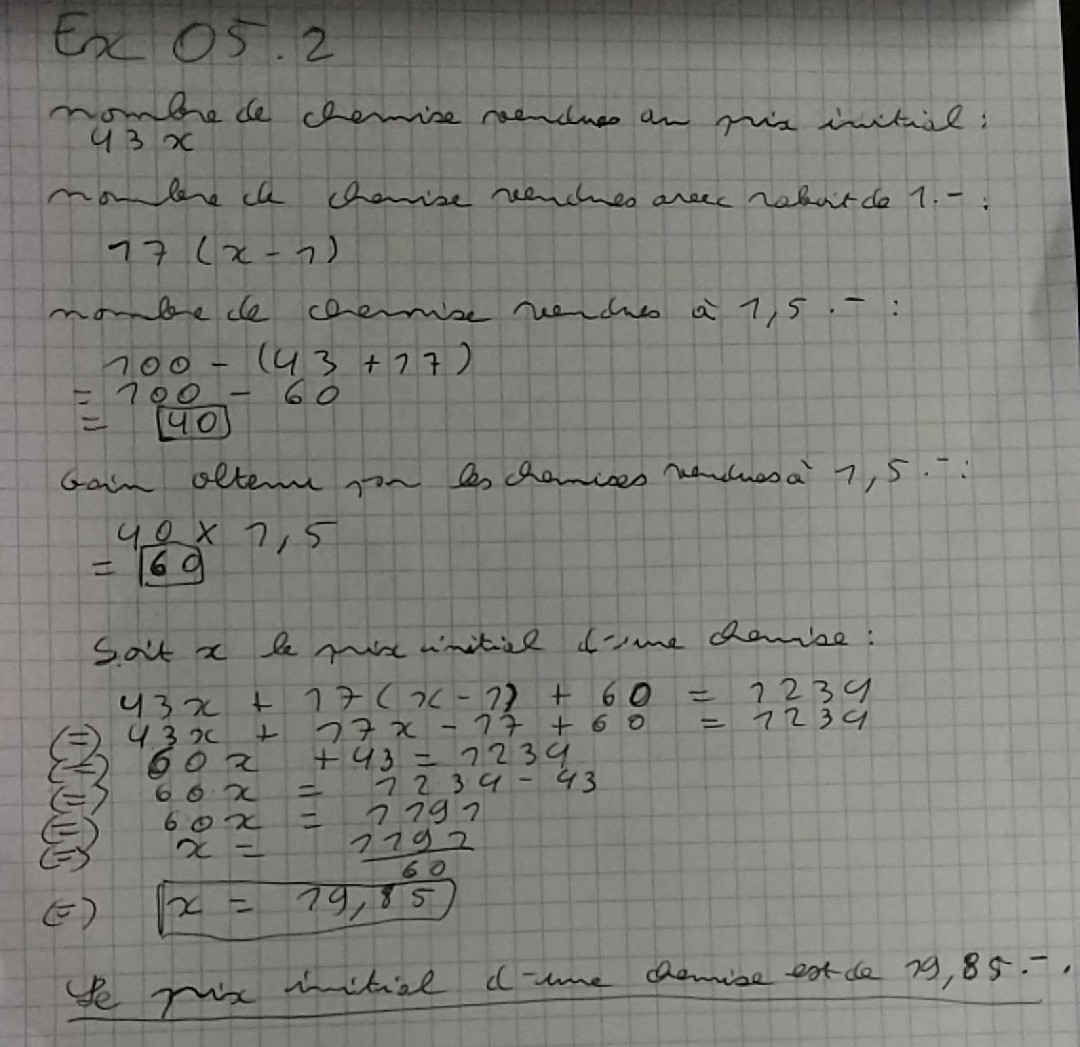 Ex 05.2
nombre de chemise vendues au prix initial :
43x
nombre de chemise vendues avec rabait de 1.- :
17 (x - 1)
nombre de chemise vendues à 1,5 .- :
100 - (43 + 17)
= 100 - 60
= 40
Gain obtenu par les chemises vendues à 1,5 .- :
40 x 1,5
= 60
Soit x le prix initial d'une chemise :
43x + 17(x - 1) + 60 = 1234
(=) 43x + 17x - 17 + 60 = 1234
(=) 60x + 43 = 1234
(=) 60x = 1234 - 43
(=) 60x = 1191
(=) x = 1191
60
(=) x = 19,85
Le prix initial d'une chemise est de 19,85.-.